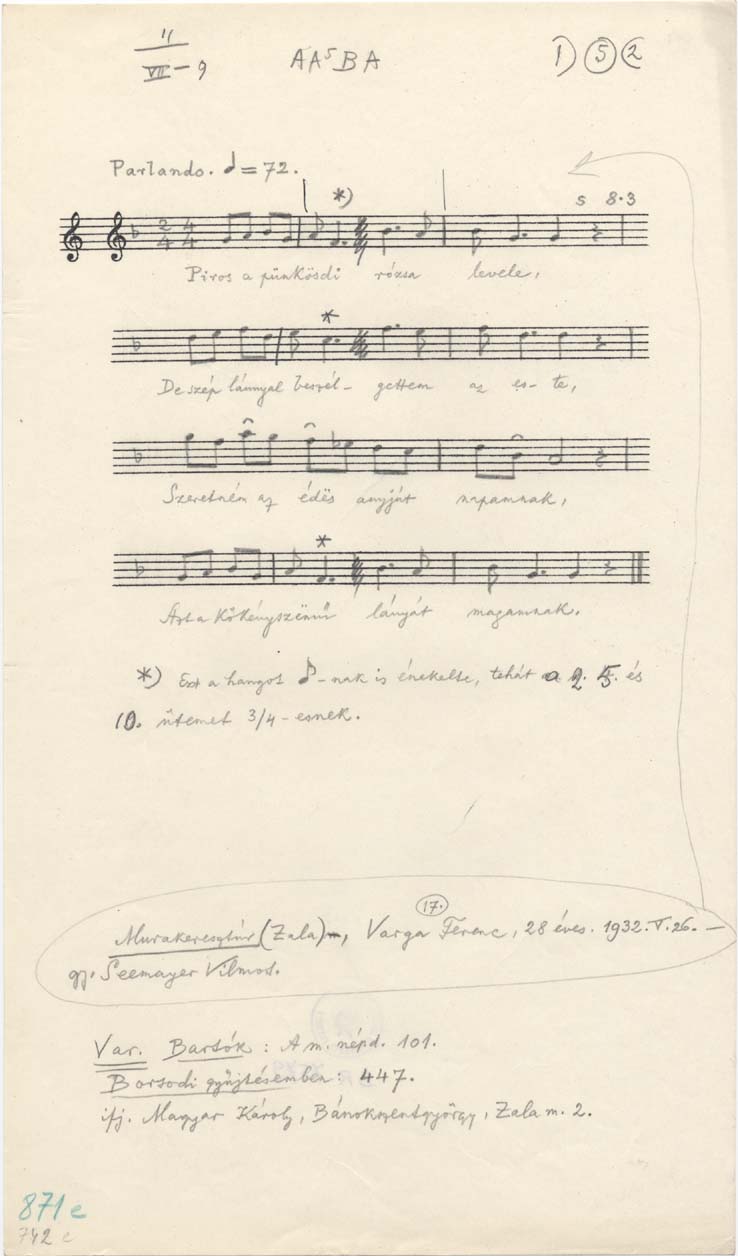 II
VII-9
AA⁵BA
1) 5 2
Parlando. ♩=72.
*)
s 8·3
2/4 4/4
Piros a pünkösdi rózsa levele,
*
De szép lánnyal beszél- gettem az es- te,
Szeretném az édës anyját napamnak,
*
Azt a kökényszëmű lányát magamnak.
*) Ezt a hangot ♪-nak is énekelte, tehát a 2. 5. és
10. ütemet 3/4-esnek.
17.
Murakeresztúr (Zala), Varga Ferenc, 28 éves. 1932. V. 26. –
gy. Seemayer Vilmos.
Var. Bartók: A m. népd. 101.
Borsodi gyűjtésemben: 447.
ifj. Magyar Károly, Bánokszentgyörgy, Zala m. 2.
871 e
742 e